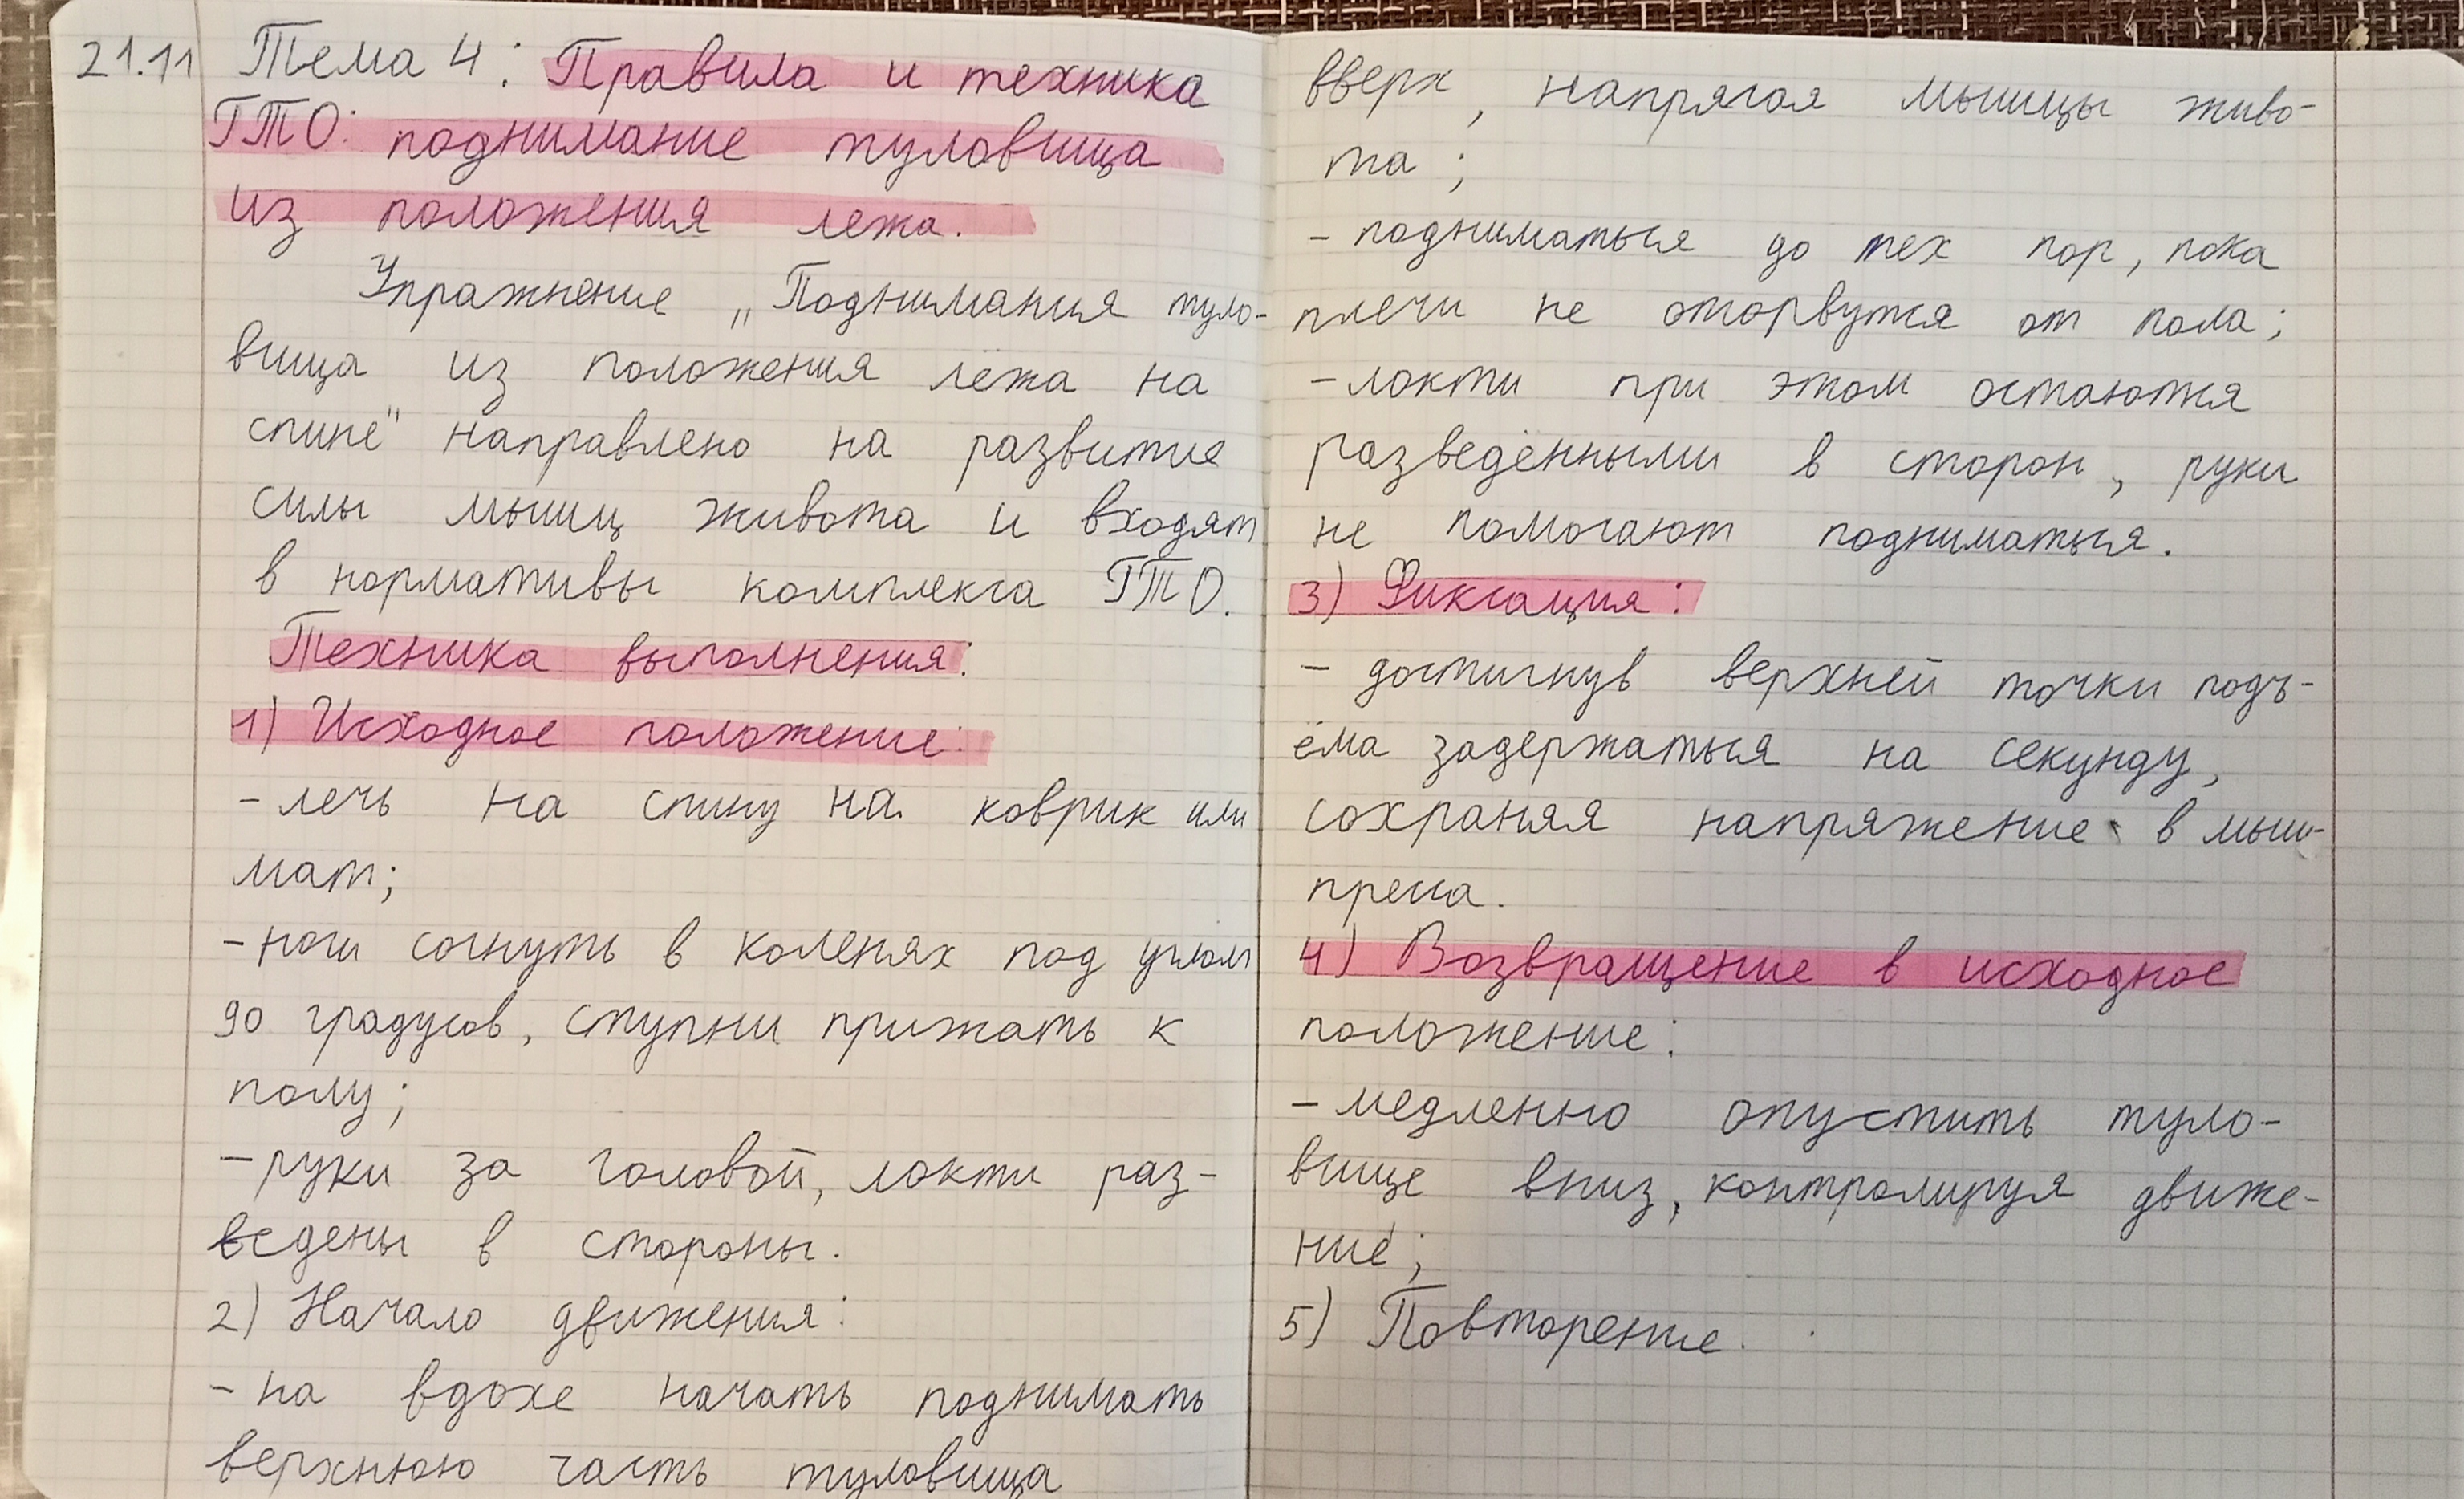 21.11 Тема 4: Правила и техника
ГТО: поднимание туловища
из положения лежа.
Упражнение „Поднимания туло-
вища из положения лёжа на
спине" направлено на развитие
силы мышц живота и входят
в нормативы комплекса ГТО.
Техника выполнения:
1) Исходное положение:
- лечь на спину на коврик или
мат;
- ноги согнуть в коленях под углом
90 градусов, ступни прижать к
полу;
- руки за головой, локти раз-
ведены в стороны.
2) Начало движения:
- на вдохе начать поднимать
верхнюю часть туловища
вверх, напрягая мышцы живо-
та;
- подниматься до тех пор, пока
плечи не оторвутся от пола;
- локти при этом остаются
разведёнными в сторон, руки
не помогают подниматься.
3) Фиксация:
- достигнув верхней точки подъ-
ёма задержаться на секунду,
сохраняя напряжение в мыш-
пресса.
4) Возвращение в исходное
положение:
- медленно опустить туло-
вище вниз, контролируя движе-
ние;
5) Повторение.